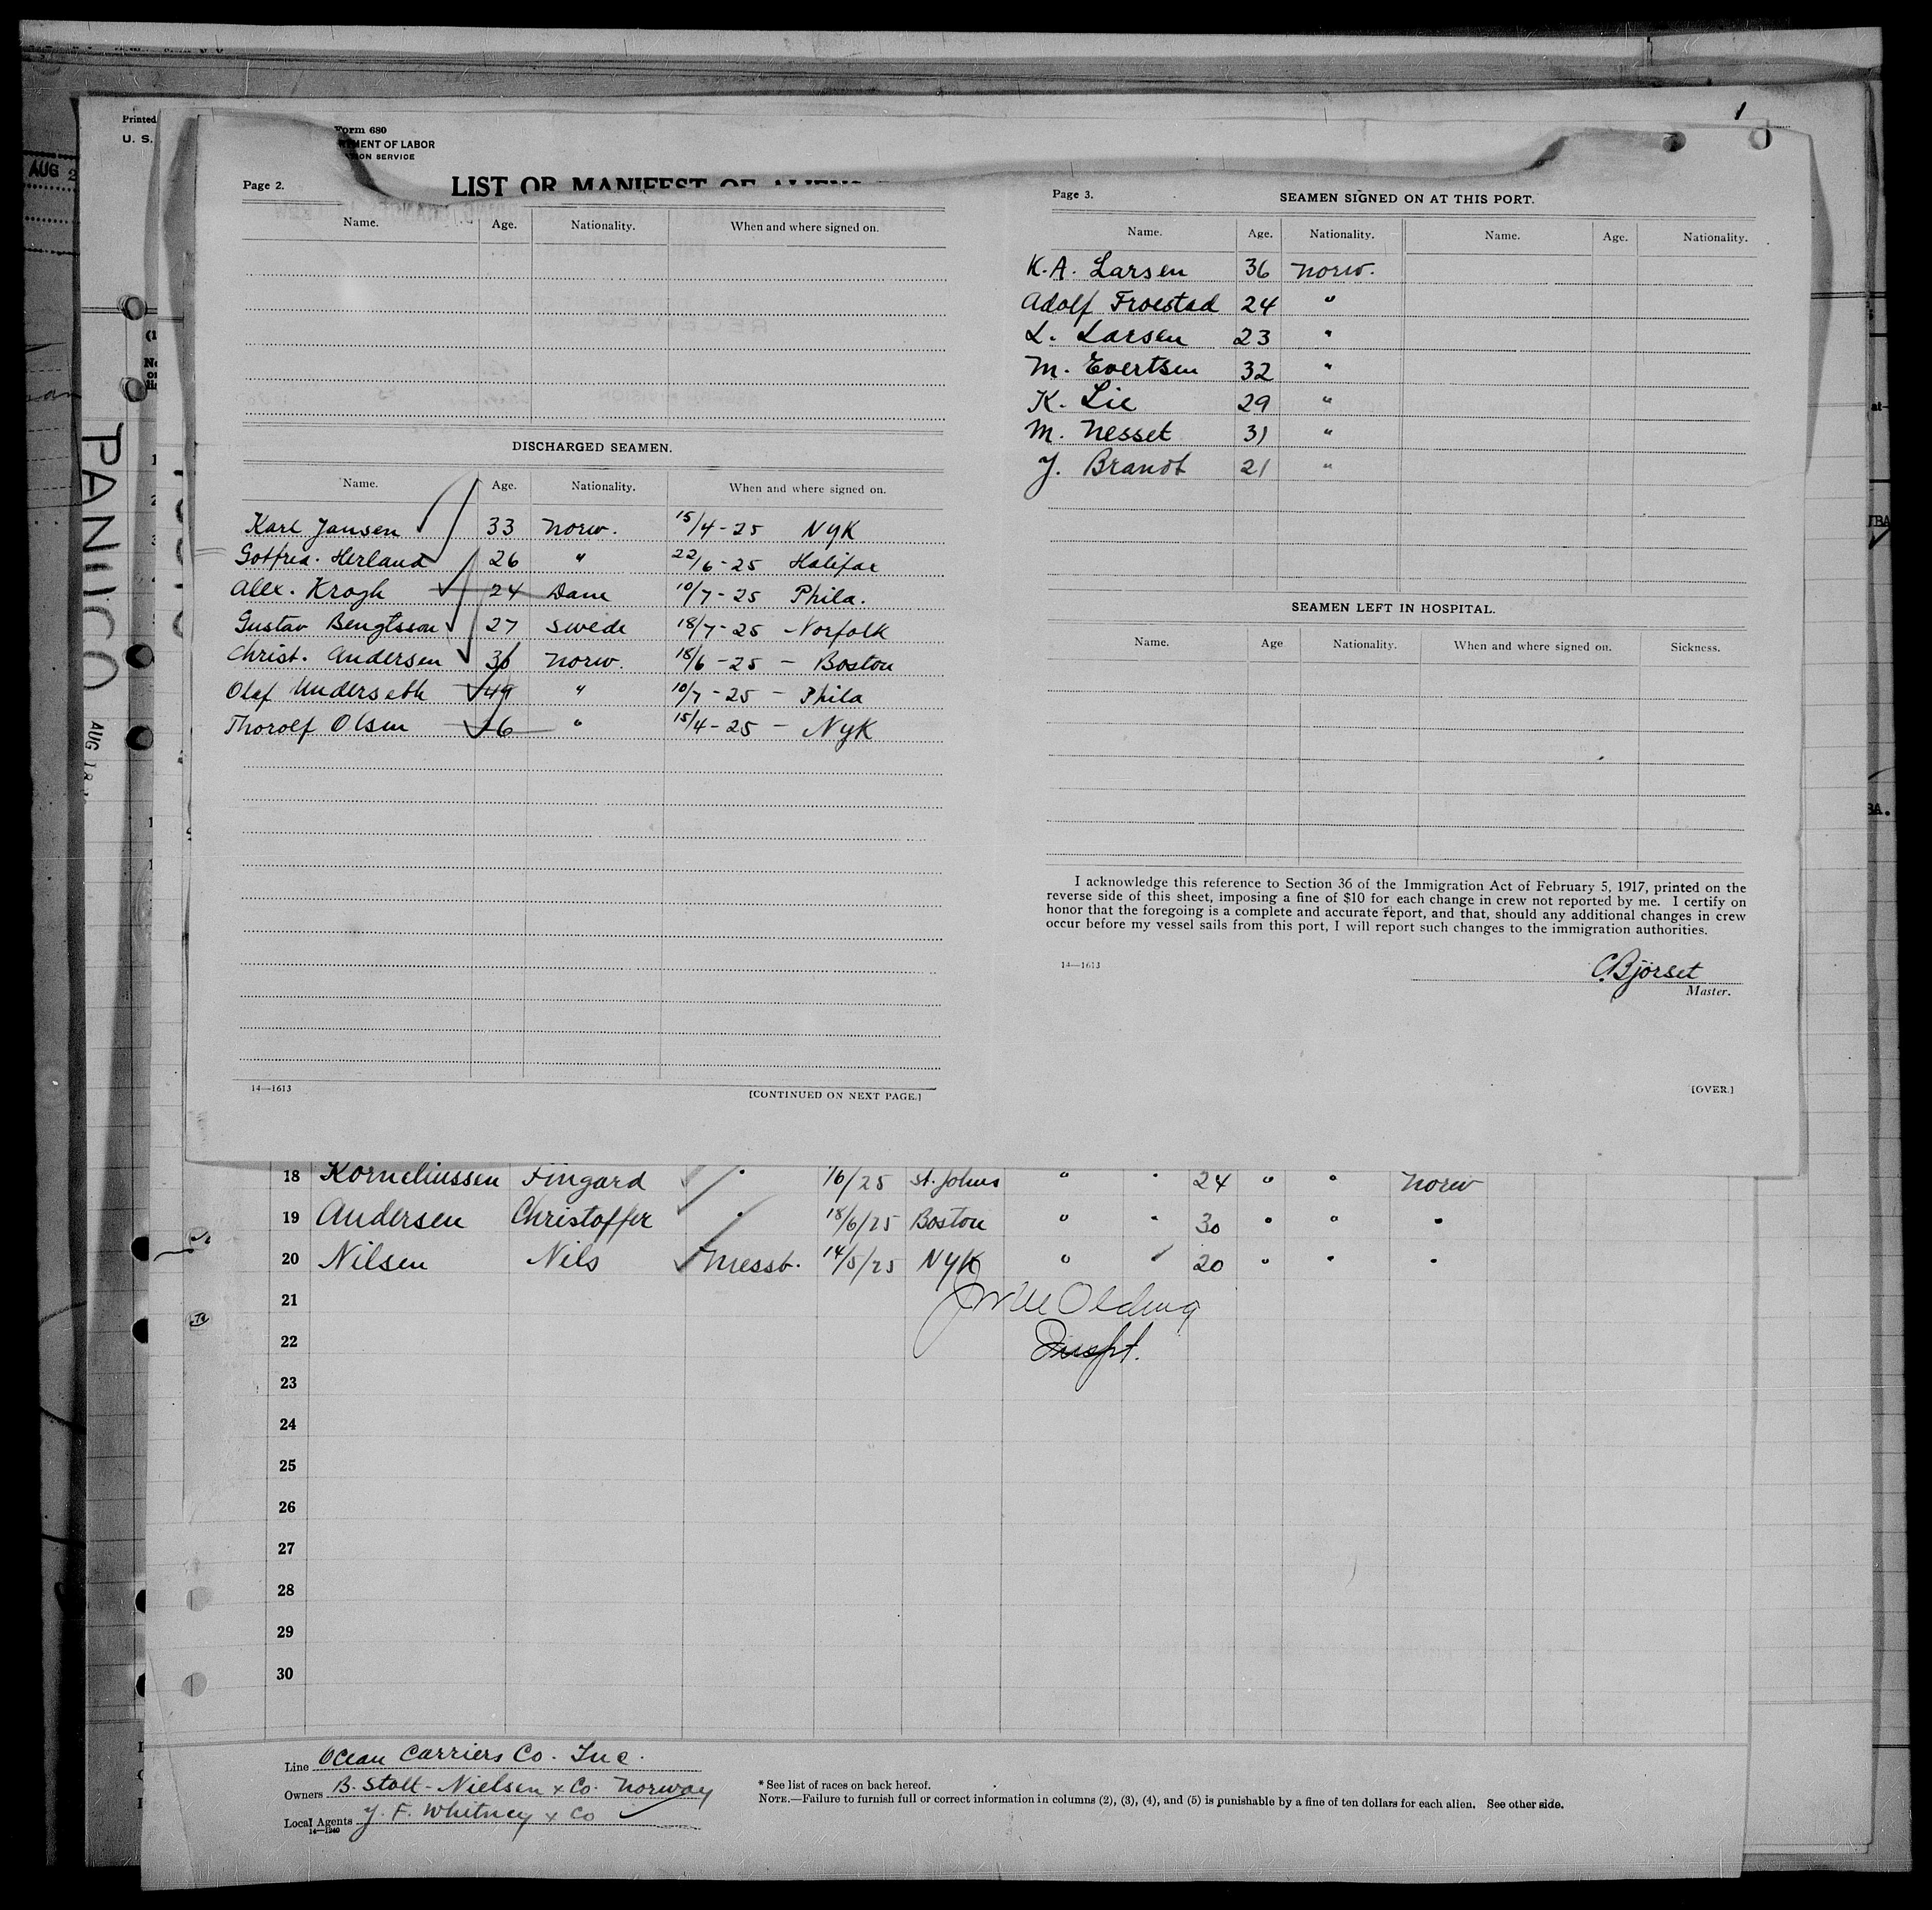 Printed
U. S.
AUG 2
PANUCO
AUG 18
1
Form 680
MENT OF LABOR
ION SERVICE
LIST OR MANIFEST OF ALIENS
Page 2.
Name. Age. Nationality. When and where signed on.
DISCHARGED SEAMEN.
Name. Age. Nationality. When and where signed on.
Karl Jansen 33 Norw. 15/4-25 NYK
Gotfred. Herland 26 " 22/6-25 Halifax
Alex. Krogh 24 Dane 10/7-25 Phila.
Gustav Bengtsson 27 Swede 18/7-25 Norfolk
Christ. Andersen 30 Norw. 18/6-25 - Boston
Olaf Underseth 49 " 10/7-25 - Phila
Thorolf Olsen 26 " 15/4-25 - NYK
14—1613
[CONTINUED ON NEXT PAGE.]
Page 3.
SEAMEN SIGNED ON AT THIS PORT.
Name. Age. Nationality. Name. Age. Nationality.
K. A. Larsen 36 Norw.
Adolf Froestad 24 "
L. Larsen 23 "
M. Evertsen 32 "
K. Lie 29 "
M. Nesset 31 "
J. Brandt 21 "
SEAMEN LEFT IN HOSPITAL.
Name. Age Nationality. When and where signed on. Sickness.
I acknowledge this reference to Section 36 of the Immigration Act of February 5, 1917, printed on the
reverse side of this sheet, imposing a fine of $10 for each change in crew not reported by me. I certify on
honor that the foregoing is a complete and accurate report, and that, should any additional changes in crew
occur before my vessel sails from this port, I will report such changes to the immigration authorities.
14—1613
C. Bjørset
Master.
[OVER.]
18 Korneliussen Fingard " 16/25 St. Johns " " 24 " " Norw
19 Andersen Christoffer " 18/6/25 Boston " " 30 " " "
20 Nilsen Nils Messb. 14/5/25 NYK " " 20 " " "
21
22 Inspt.
23
24
25
26
27
28
29
30
Line Ocean Carriers Co. Inc.
Owners B. Stolt-Nielsen & Co. Norway
Local Agents J. F. Whitney & Co
14—1240
* See list of races on back hereof.
NOTE.—Failure to furnish full or correct information in columns (2), (3), (4), and (5) is punishable by a fine of ten dollars for each alien. See other side.